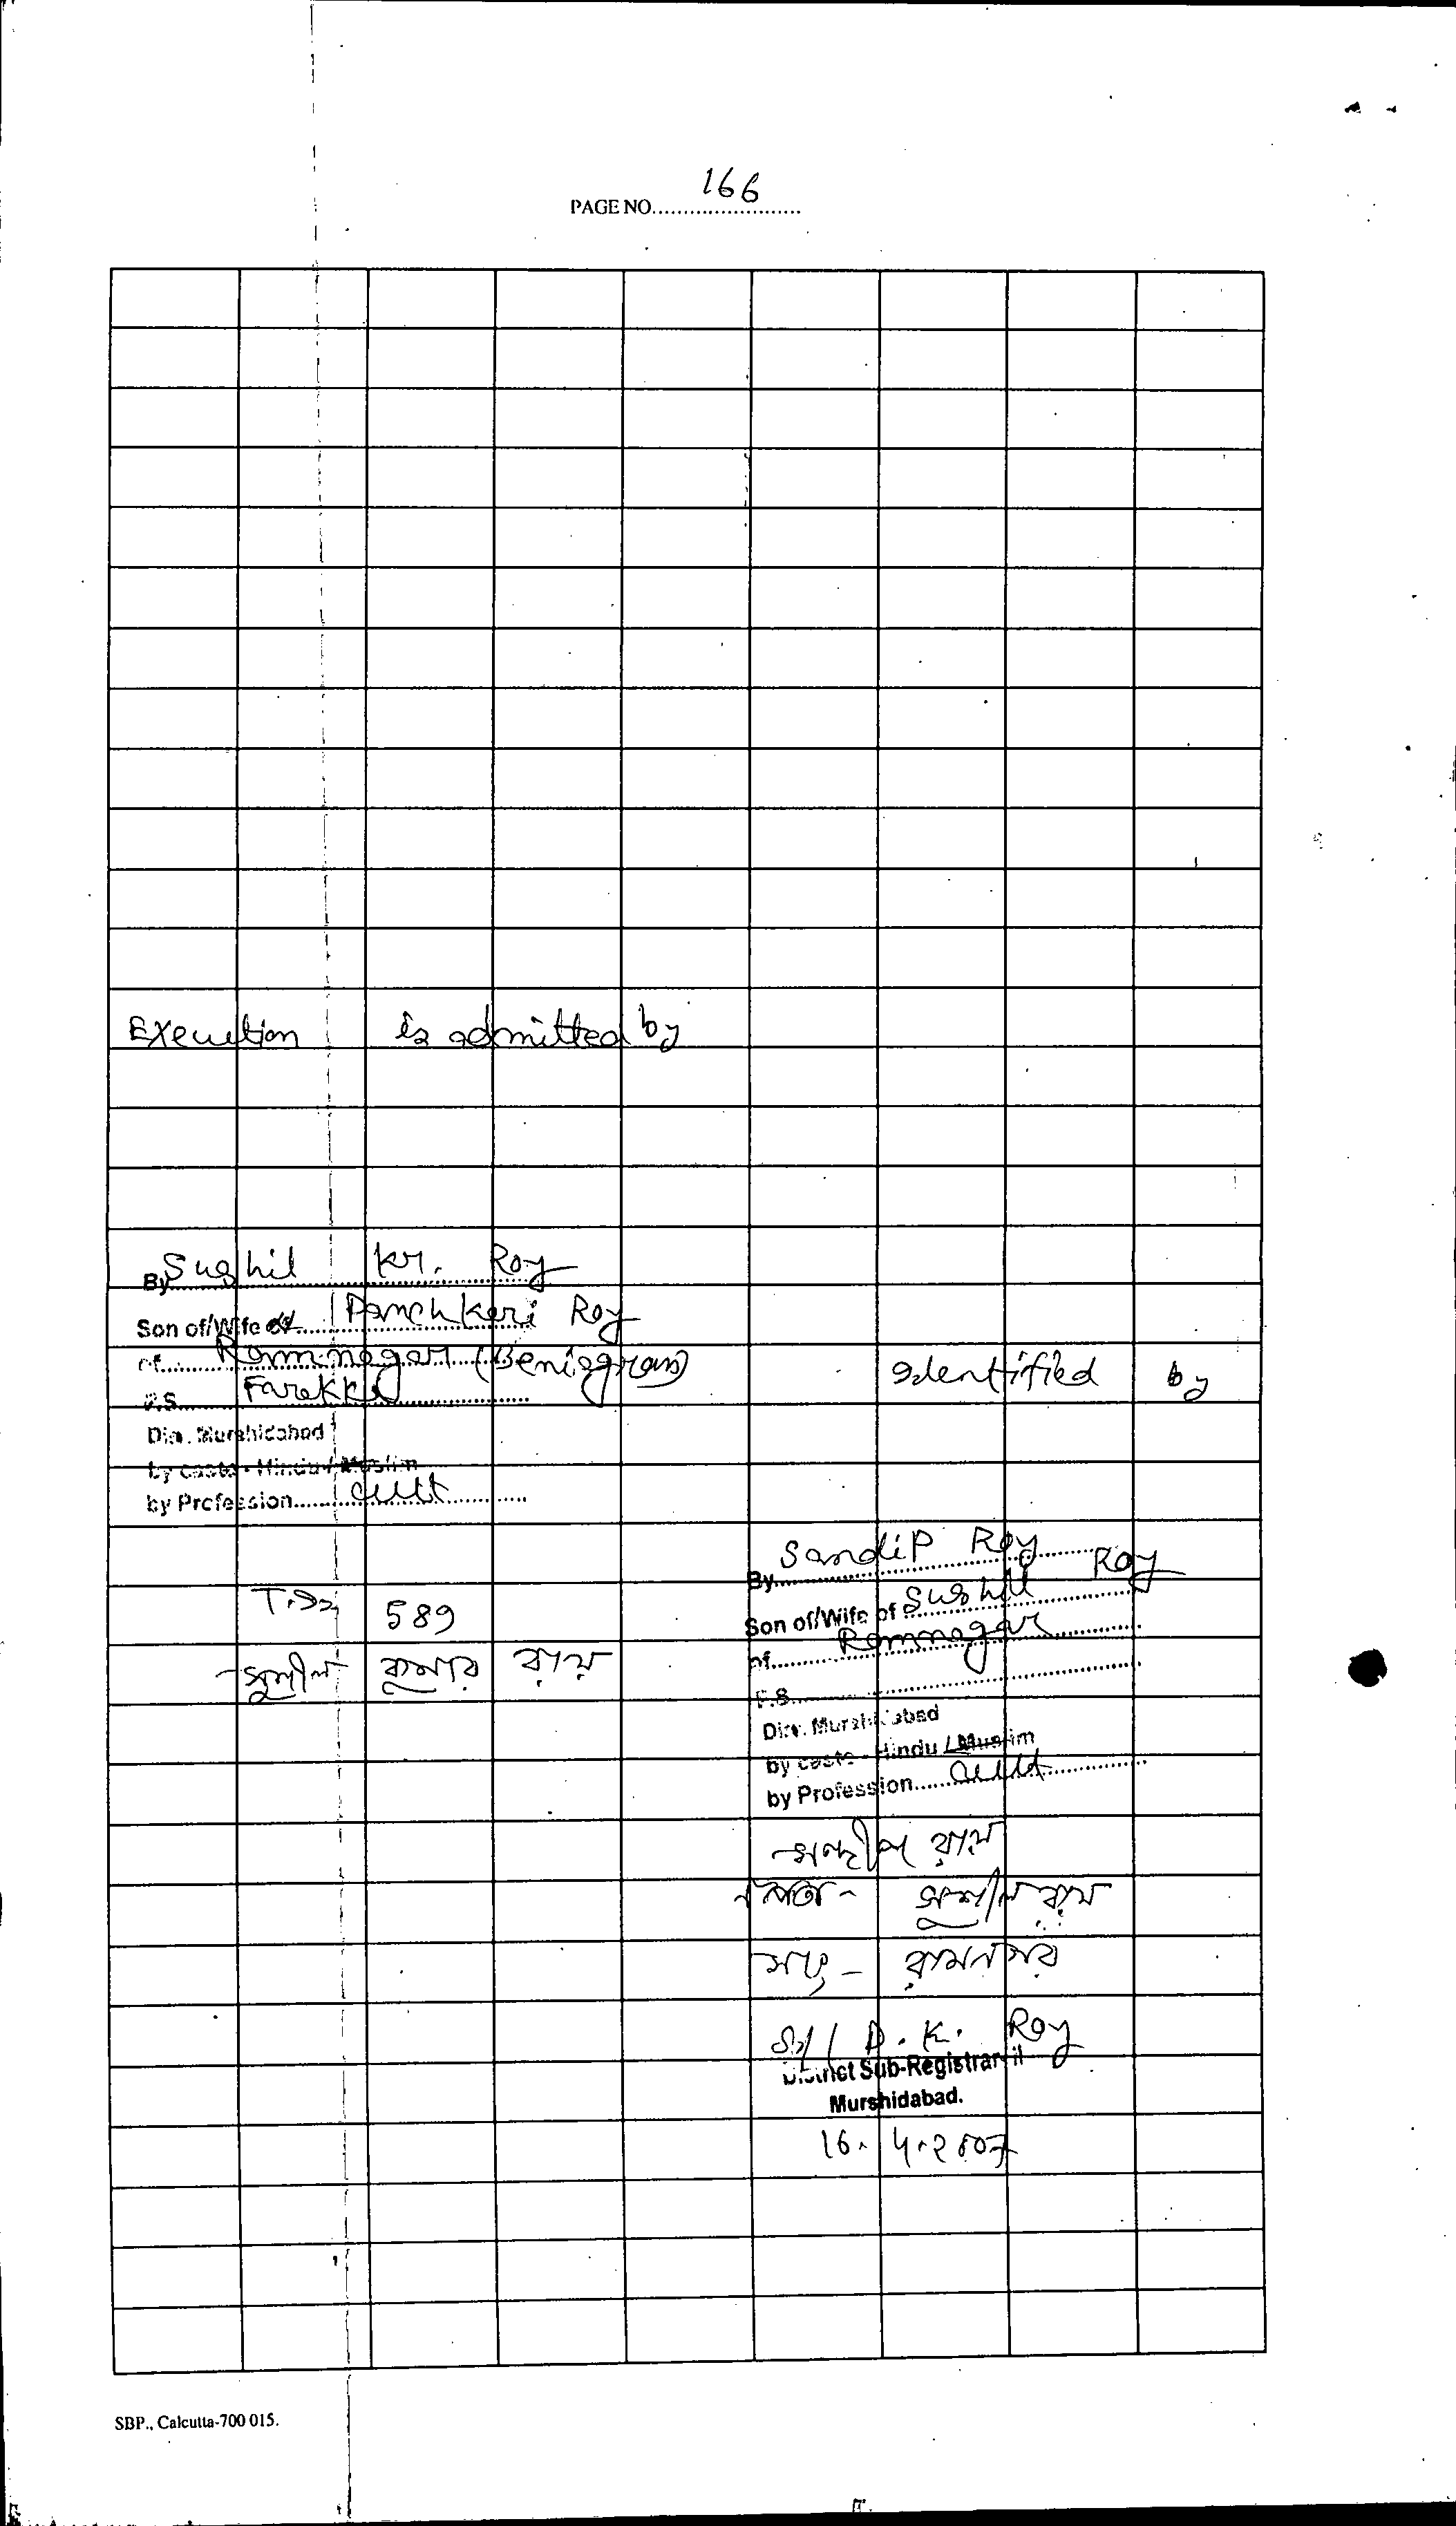 PAGE NO. 166
Execution is admitted by
By Sushil Kr. Roy
Son of/Wife of Panchkari Roy
of Ramnagar (Beniagram)
P.S. Farakka
Dist. Murshidabad
by caste - Hindu / Muslim
by Profession cult
Identified by
T.D. 589
সুশীল কুমার রায়
By Sandip Roy
Son of/Wife of Sushil Roy
of Ramnagar
P.S.
Dist. Murshidabad
by caste - Hindu / Muslim
by Profession cult
সন্দীপ রায়
পিতা - সুশীল রায়
সাং - রামনগর
Sd/ D. K. Roy
District Sub-Registrar-II
Murshidabad.
16.4.2007
SBP., Calcutta-700 015.